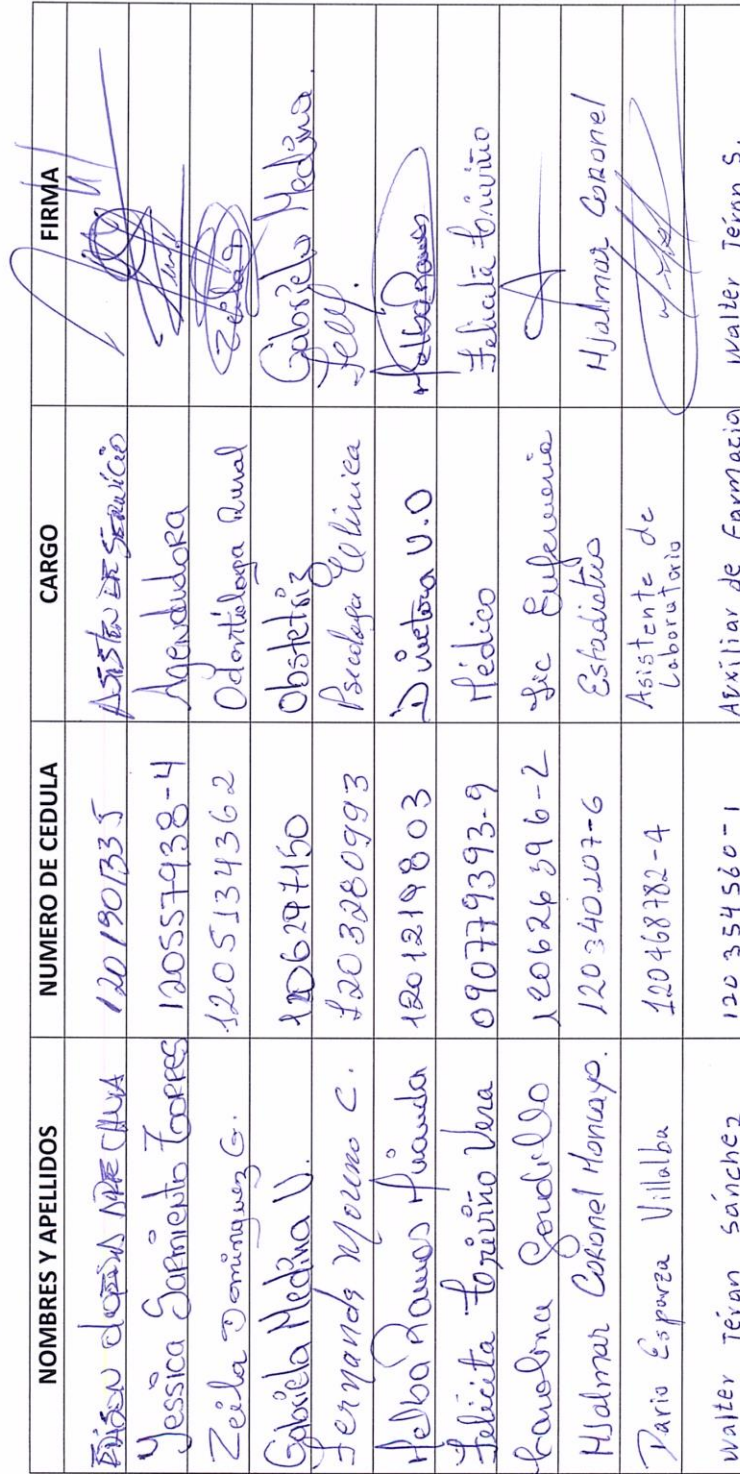 NOMBRES Y APELLIDOS NUMERO DE CEDULA CARGO FIRMA
1201901335 DE SERVICIO
Yessica Sarmiento Torres 120557938-4 Agendadora
Zeila Dominguez G. 1205134362 Odontóloga Rural
Gabriela Medina V. 1206297150 Obstetriz Gabriela Medina.
Fernanda Moreno C. 1203280993 Psicologa Clinica
Melba Ramos Miranda 1201219803 Directora U.O Melba Ramos
Felicita Triviño Vera 090779393-9 Médico Felicita Triviño
Carolina Gordillo 120626596-2 Lic Enfermeria
Hjalmar Coronel Moncayo. 120340207-6 Estadistico Hjalmar Coronel
Dario Esparza Villalba 120468782-4 Asistente de
Laboratorio
Walter Terán Sánchez 120354560-1 Auxiliar de Farmacia Walter Terán S.